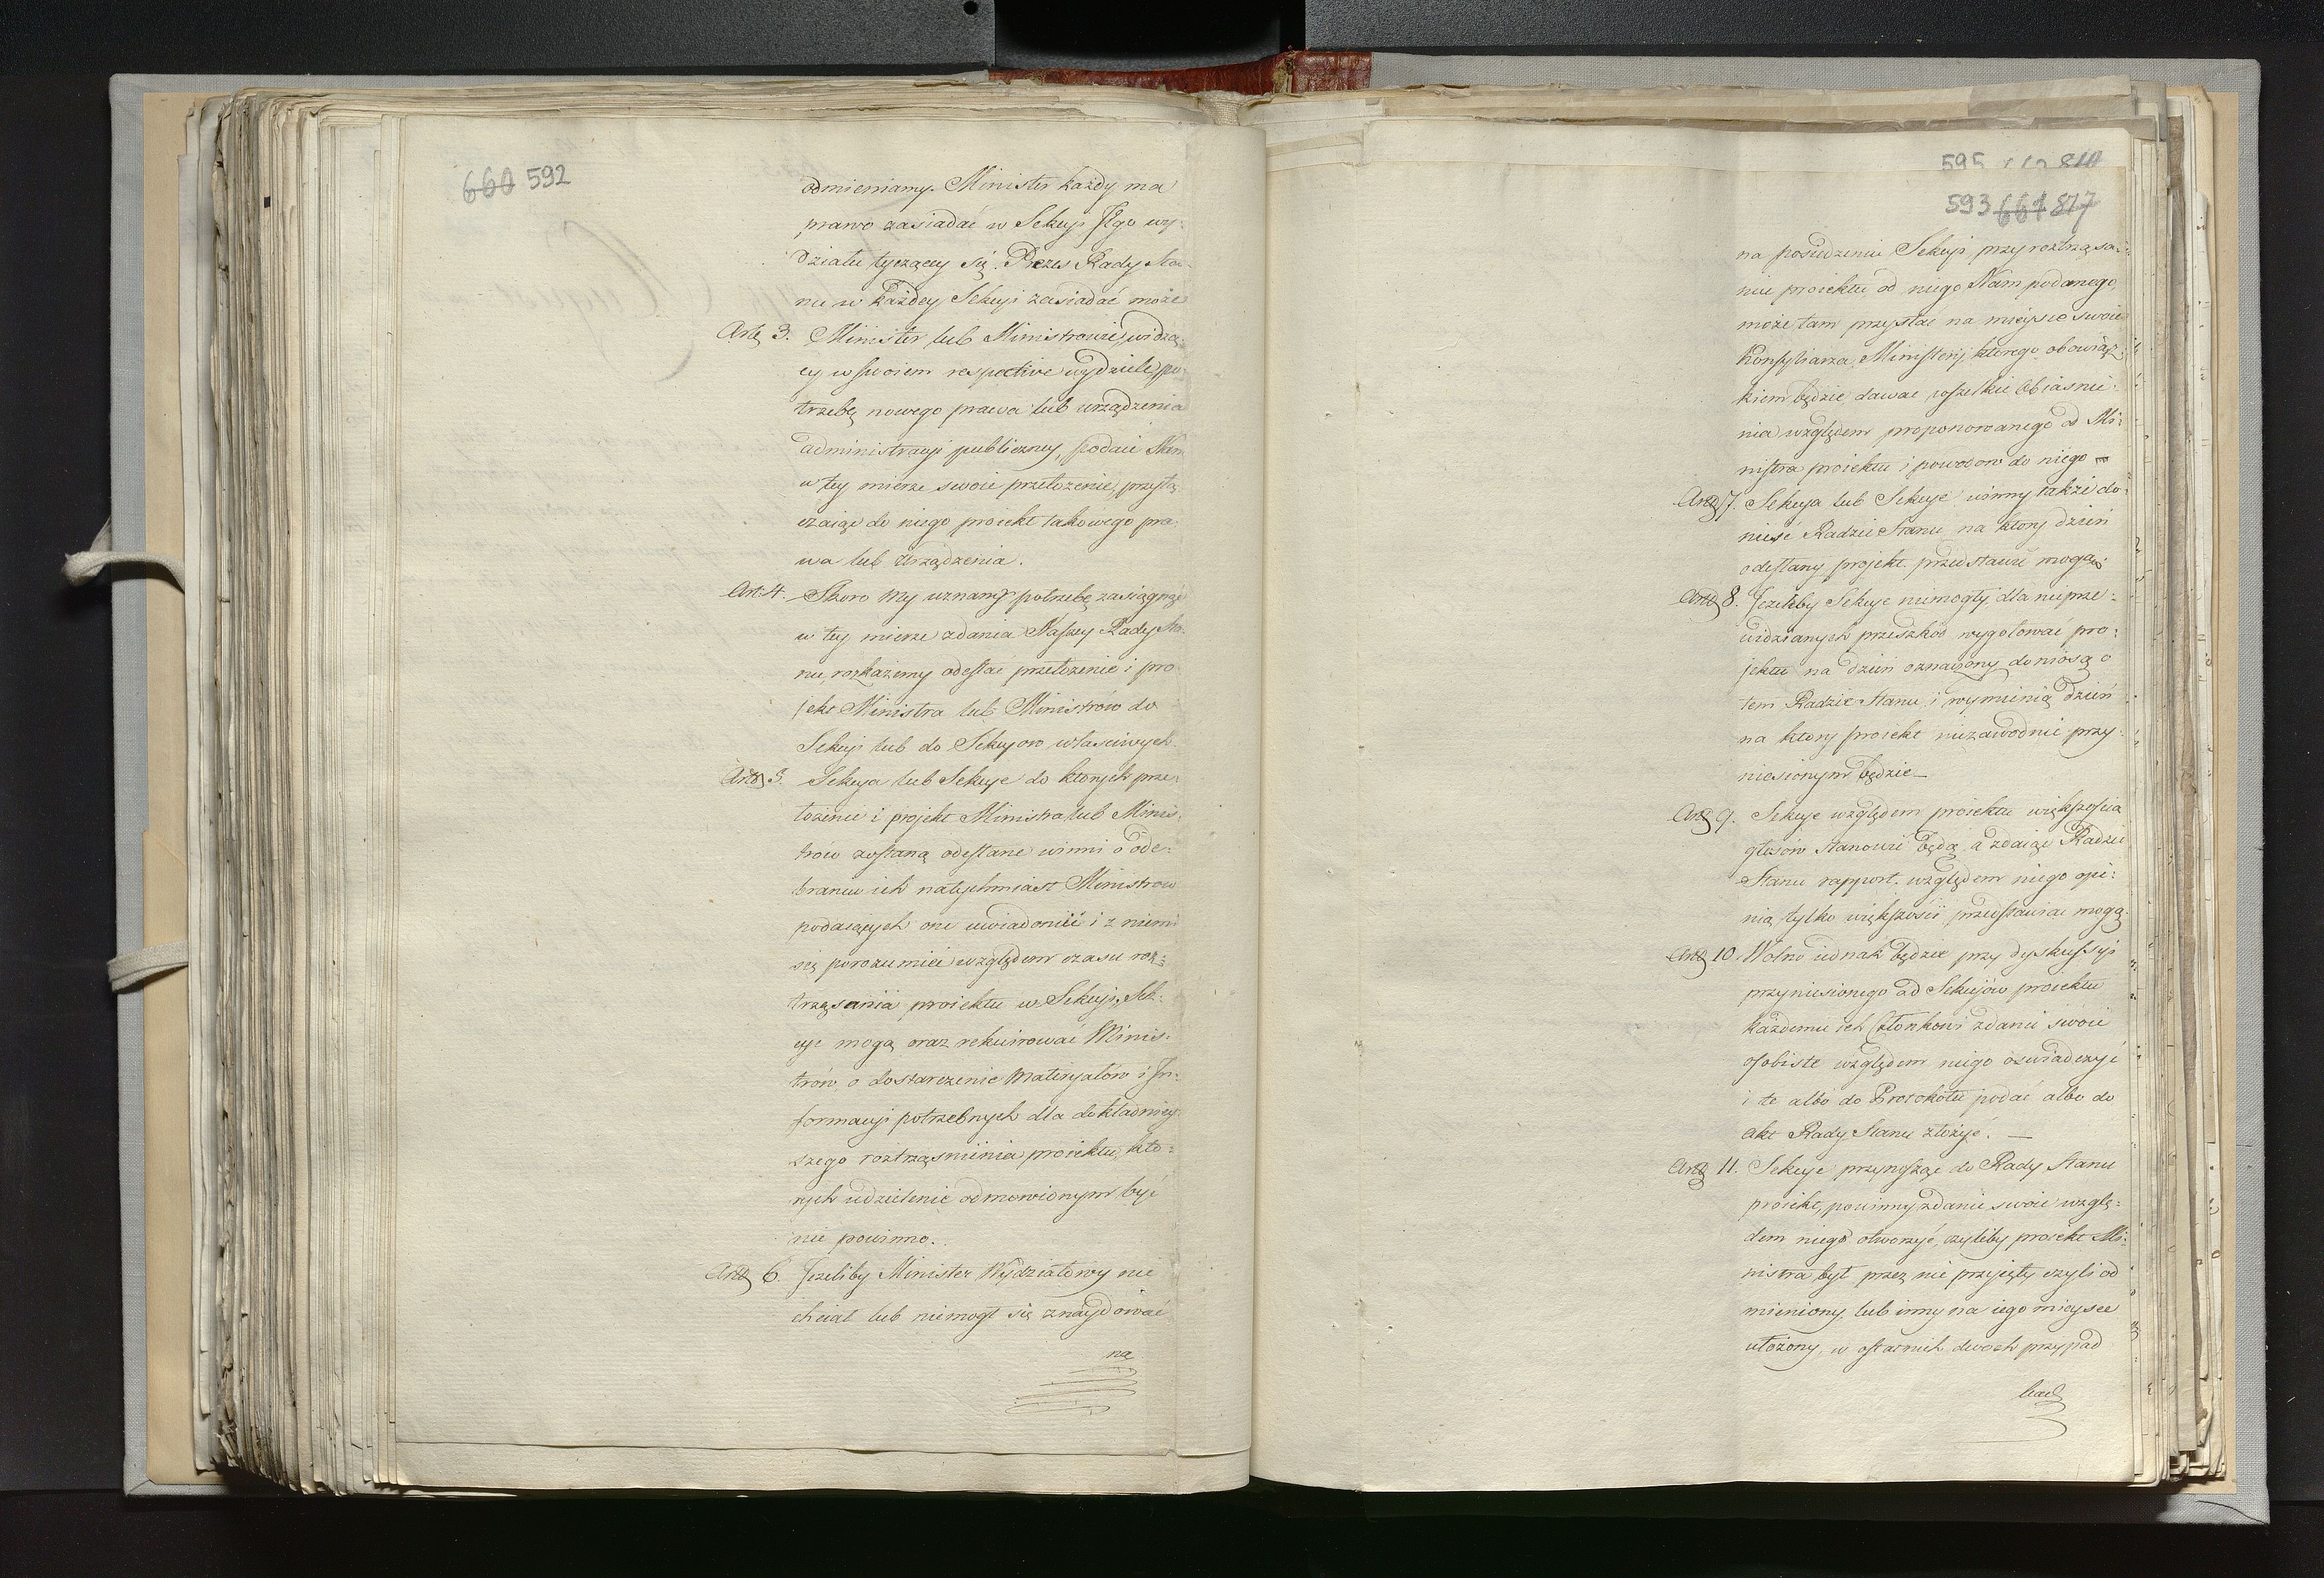 660 592
odmieniamy. Minister każdy ma
prawo zasiadać w Sekcyi Jego wy-
działu tyczącey się. Prezes Rady Sta-
nu w każdey Sekcyi zasiadać może
Art. 3. Minister lub Ministrowie widzą-
cy w swoiem respective wydziele po-
trzebę nowego prawa lub urządzenia
administracyi publiczney, podaie Nam
w tey mierze swoie przełożenie, przyłą-
czaiąc do niego proiekt takowego pra-
wa lub Urządzenia.
Art: 4. Skoro My uznamy potrzebę zasiągnąć
w tey mierze zdania Naszey Rady Sta-
nu, rozkażemy odesłać przełożenie i pro
jekt Ministra lub Ministrów do
Sekcyi lub do Sekcyow właściwych
Art. 5. Sekcya lub Sekcye do których prze
łożenie i projekt Ministra lub Minis-
trów zostaną odesłane winni o ode-
braniu ich natychmiast Ministrow
podaiących one uwiadomić i z niemi
się porozumieć względem czasu roz-
trząsania proiektu w Sekcyi, Sek-
cye mogą oraz rekwirować Minis-
trów o dostarczenie Materyałów i In-
formacyi potrzebnych dla dokładniey-
szego roztrząśnienia proiektu, któ-
rych udzielenie odmowionym być
nie powinno.
Art. 6. Jeżeliby Minister Wydziałowy nie
chciał lub niemogł się znaydować
na
595 810
593 661 817
na posiedzeniu Sekcyi przy roztrząsa-
niu proiektu od niego Nam podanego,
może tam przysłać na mieysce swoie
Konsyliarza Ministeryi, którego obowiąz-
kiem będzie dawać wszelkie obiaśnie-
nia względem proponowanego od Mi-
nistra proiektu i powodow do niego
Art. 7. Sekcya lub Sekcye winny także do-
nieść Radzie Stanu na który dzień
odesłany projekt przedstawić mogą
Art. 8. Jeżeliby Sekcye niemogły dla nieprze-
widzianych przeszkód wygotować pro-
jektu na dzień oznaczony doniosą o
tem Radzie Stanu i wymienią dzień
na który proiekt niezawodnie przy-
niesionym będzie
Art. 9. Sekcye względem proiektu większością
głosow stanowić będą, a zdaiąc Radzie
Stanu rapport, względem niego opi-
nią tylko większości przedstawiać mogą.
Art. 10. Wolno iednak będzie przy dyskussyi
przyniesionego od Sekcyiów proiektu
każdemu ich Członkowi zdanie swoie
osobiste względem niego oświadczyć
i te albo do Protokółu podać albo do
akt Rady Stanu złożyć.
Art. 11. Sekcye przynosząc do Rady Stanu
proiekt, powinny zdanie swoie wzglę-
dem niego otworzyć, czyliby proiekt Mi-
nistra był przez nie przyjęty czyli od
mieniony, lub inny na iego mieysce
ułożony, w ostatnich dwóch przypad
kach